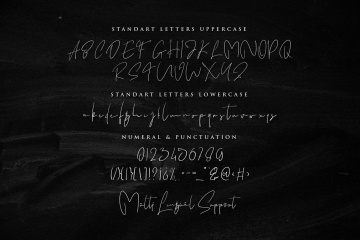 STANDART LETTERS UPPERCASE
ABCDEFGHIJKLMNOPQ
RSTUVWXYZ
STANDART LETTERS LOWERCASE
abcdefghijklmnopqrstuvwxyz
NUMERAL & PUNCTUATION
0123456789
Multi Lingual Support